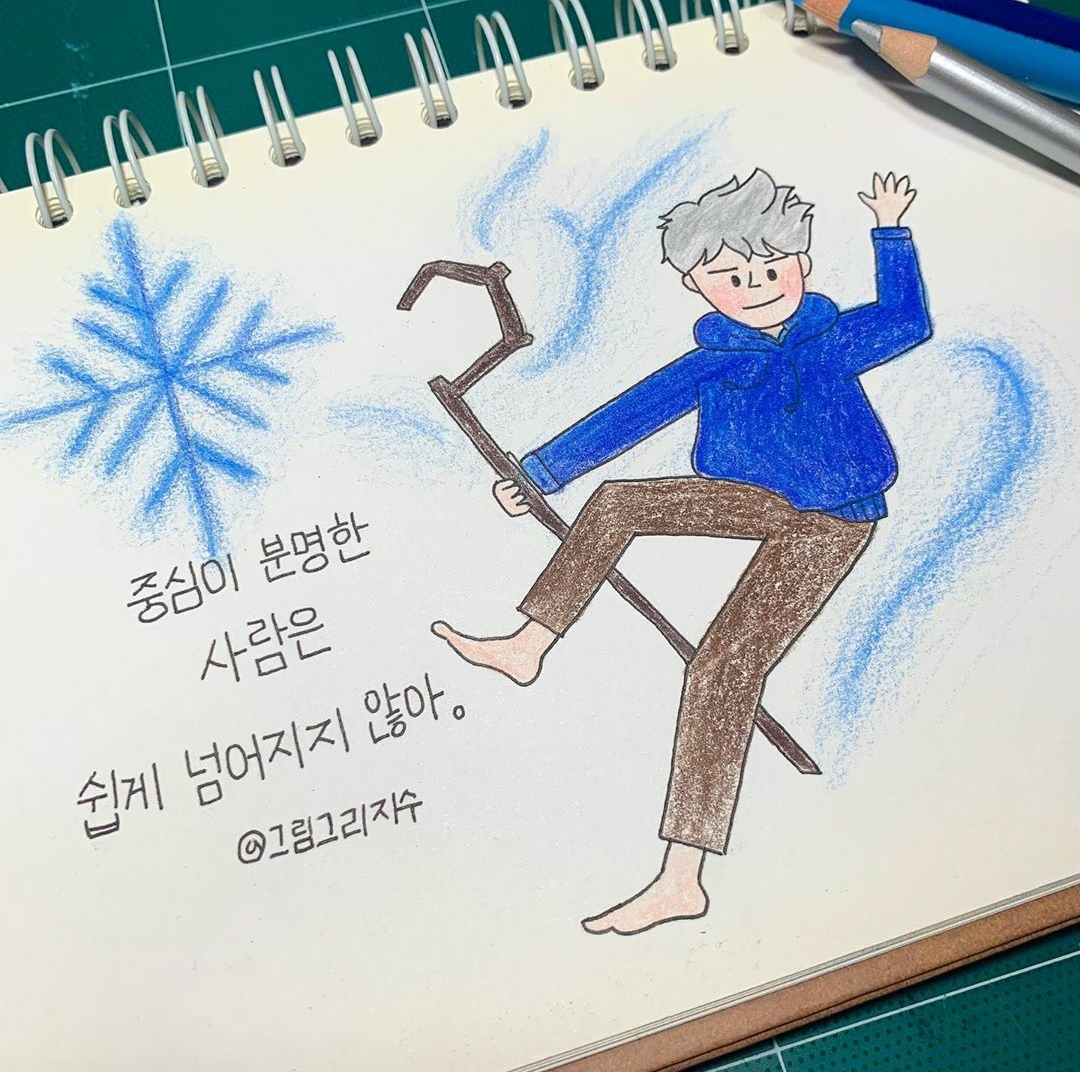 중심이 분명한
사람은
쉽게 넘어지지 않아。
@그림그리지수